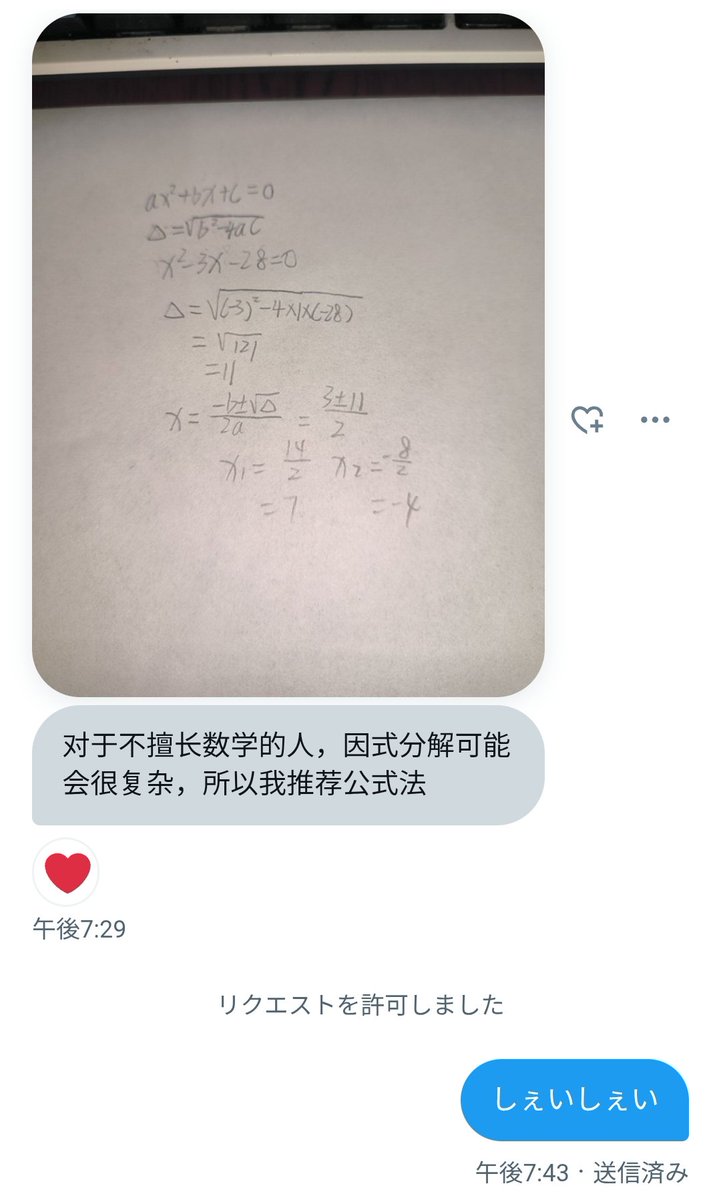 ax²+bx+c=0
Δ=√b²-4ac
x²-3x-28=0
Δ=√(-3)²-4×1×(-28)
=√121
=11
x=(-b±√Δ)/2a=(3±11)/2
x₁=14/2 x₂=-8/2
=7 =-4
对于不擅长数学的人，因式分解可能
会很复杂，所以我推荐公式法
午後7:29
リクエストを許可しました
しぇいしぇい
午後7:43・送信済み